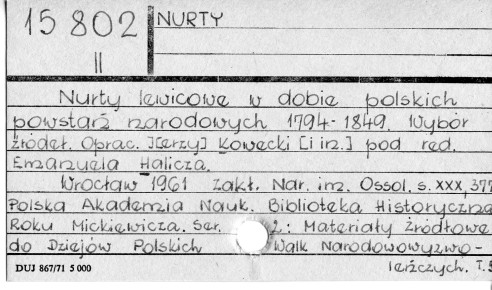 15 802
II
NURTY
Nurty lewicowe w dobie polskich
powstań narodowych 1794-1849. Wybór
źródeł. Oprac. J[erzy] Kowecki [i in.] pod red.
Emanuela Halicza.
Wrocław 1961 Zakł. Nar. im. Ossol. s. XXX, 377
Polska Akademia Nauk. Biblioteka Historyczna
Roku Mickiewicza. Ser. 2: Materiały Źródłowe
do Dziejów Polskich Walk Narodowowyzwo-
leńczych. T. 5
DUJ 867/71 5 000